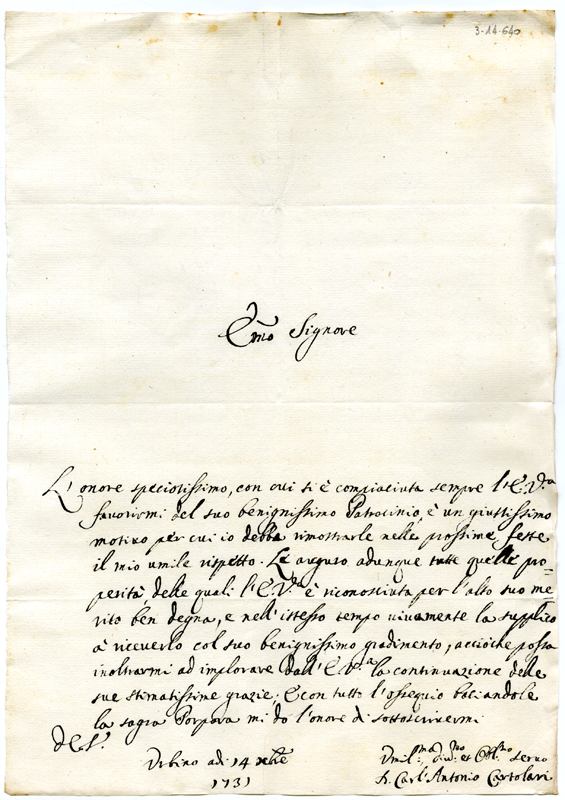 3-14-640
Em̃o Signore
L'onore speciosissimo, con cui si è compiaciuta sempre l'E: V.ra
favorirmi del suo benignissimo Patrocinio è un giustissimo
motivo per cui io debba rimostrarle nelle prossime feste
il mio umile rispetto. Le auguro adunque tutte quelle pro-
sperità delle quali l'E: V.ra è riconosciuta per l'alto suo me-
rito ben degna, e nell'istesso tempo vivamente la supplico
à riceverlo col suo benignissimo gradimento, acciòche possa
inoltrarmi ad implorare dall'E: V.ra la continuazione delle
sue stimatissime grazie. E con tutto l'ossequio baciandole
la sagra Porpora mi do l'onore di sottoscrivermi
Urbino adì 14 Xbre
1731
Umil.ma Div.mo et Obl.mo servo
Carl'Antonio Cartolari